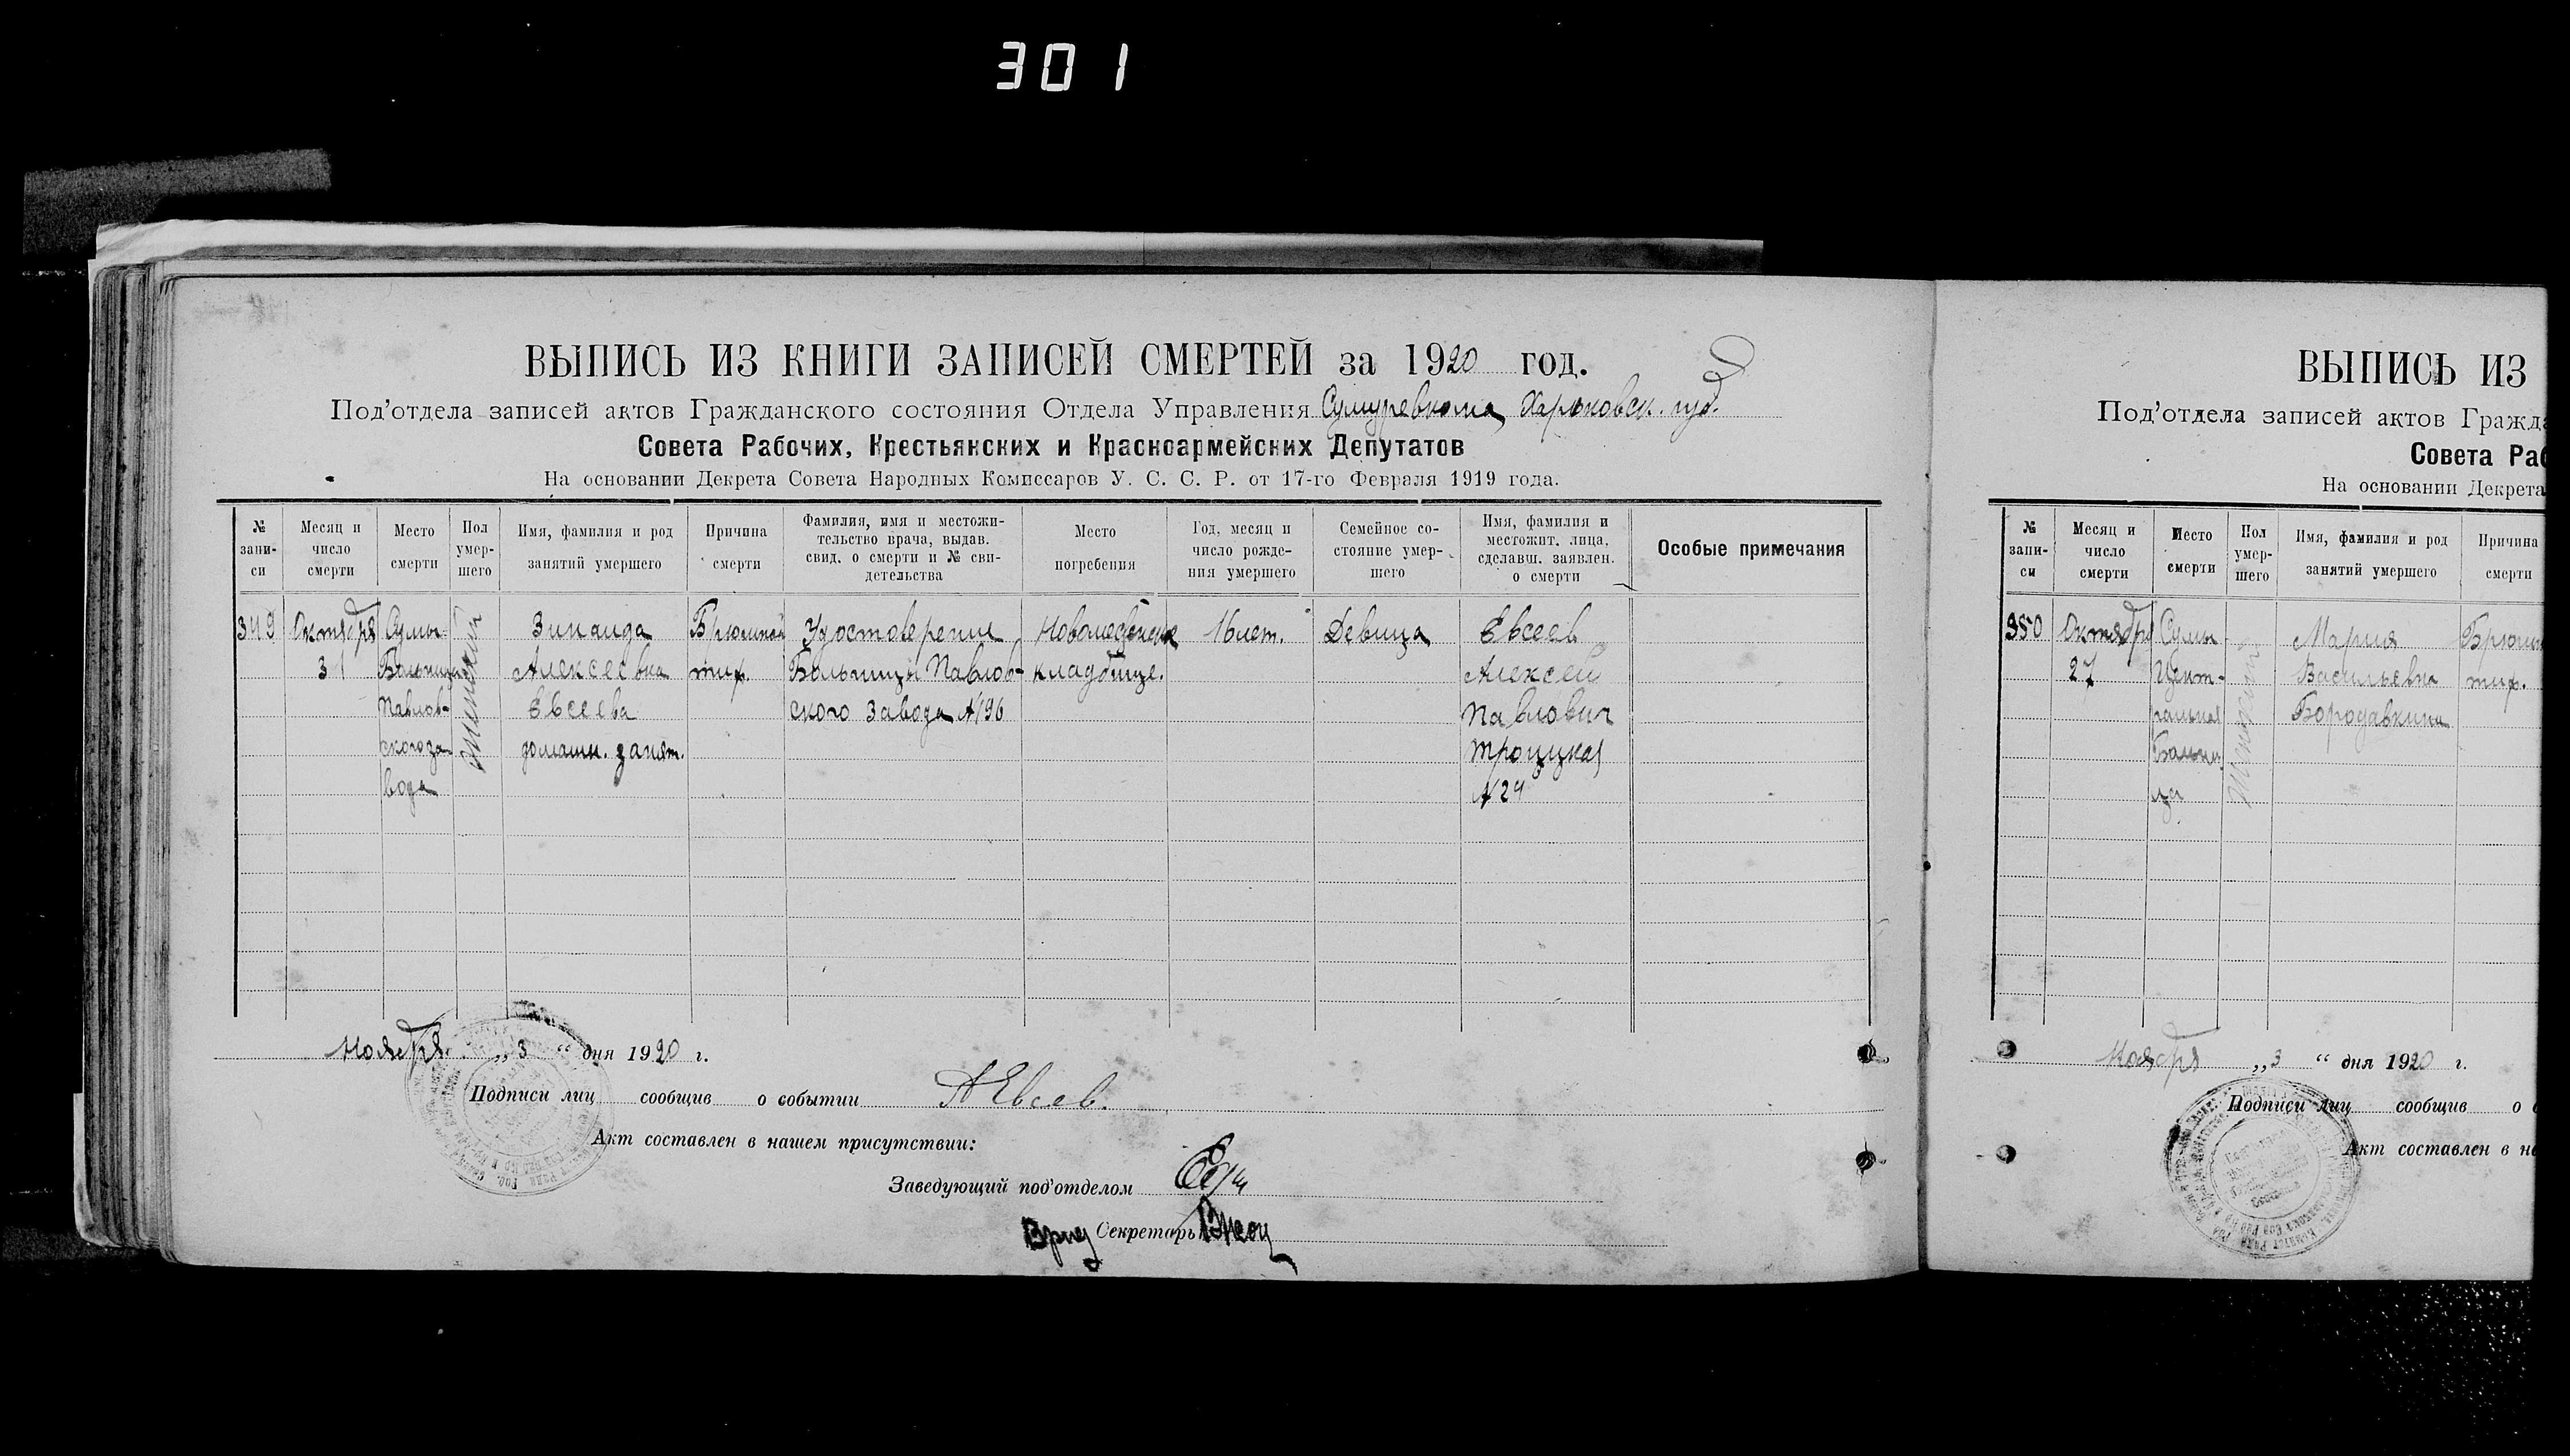 301
ВЫПИСЬ ИЗ КНИГИ ЗАПИСЕЙ СМЕРТЕЙ за 1920 год.
Под'отдела записей актов Гражданского состояния Отдела Управления Сумуревкома Харьковск. губ.
Совета Рабочих, Крестьянских и Красноармейских Депутатов
На основании Декрета Совета Народных Комиссаров У. С. С. Р. от 17-го Февраля 1919 года.
№ запи-
си
Месяц и
число
смерти
Место
смерти
Пол
умер-
шего
Имя, фамилия и род
занятий умершего
Причина
смерти
Фамилия, имя и местожи-
тельство врача, выдав.
свид. о смерти и № сви-
детельства
Место
погребения
Год, месяц и
число рожде-
ния умершего
Семейное со-
стояние умер-
шего
Имя, фамилия и
местожит. лица,
сделавш. заявлен.
о смерти
Особые примечания
349
Октября
31
Сумы
Больница
Павлов-
ского за
вода
Женский
Зинаида
Алексеевна
Евсеева
домашн. занят.
Брюшной
тиф.
Удостоверение
Больницы Павлов-
ского Завода №196
кладбище.
16 лет.
Девица
Евсеев
Алексей
Павлович
Троицкая
№24
Ноября „ 3 “ дня 1920 г.
Подписи лиц сообщив о событии А Евсеев.
Акт составлен в нашем присутствии:
Заведующий под'отделом
Врид Секретарь
ВЫПИСЬ ИЗ
Под'отдела записей актов Гражда
Совета Раб
На основании Декрета
№
запи-
си
Месяц и
число
смерти
Место
смерти
Пол
умер-
шего
Имя, фамилия и род
занятий умершего
Причина
смерти
350
Октября
27
Сумы
Цент-
ральная
Больни
ца
Женский
Мария
Васильевна
Бородавкина
Брюшн
тиф.
Ноября „ 3 “ дня 1920 г.
Подписи лиц сообщив о
Акт составлен в на